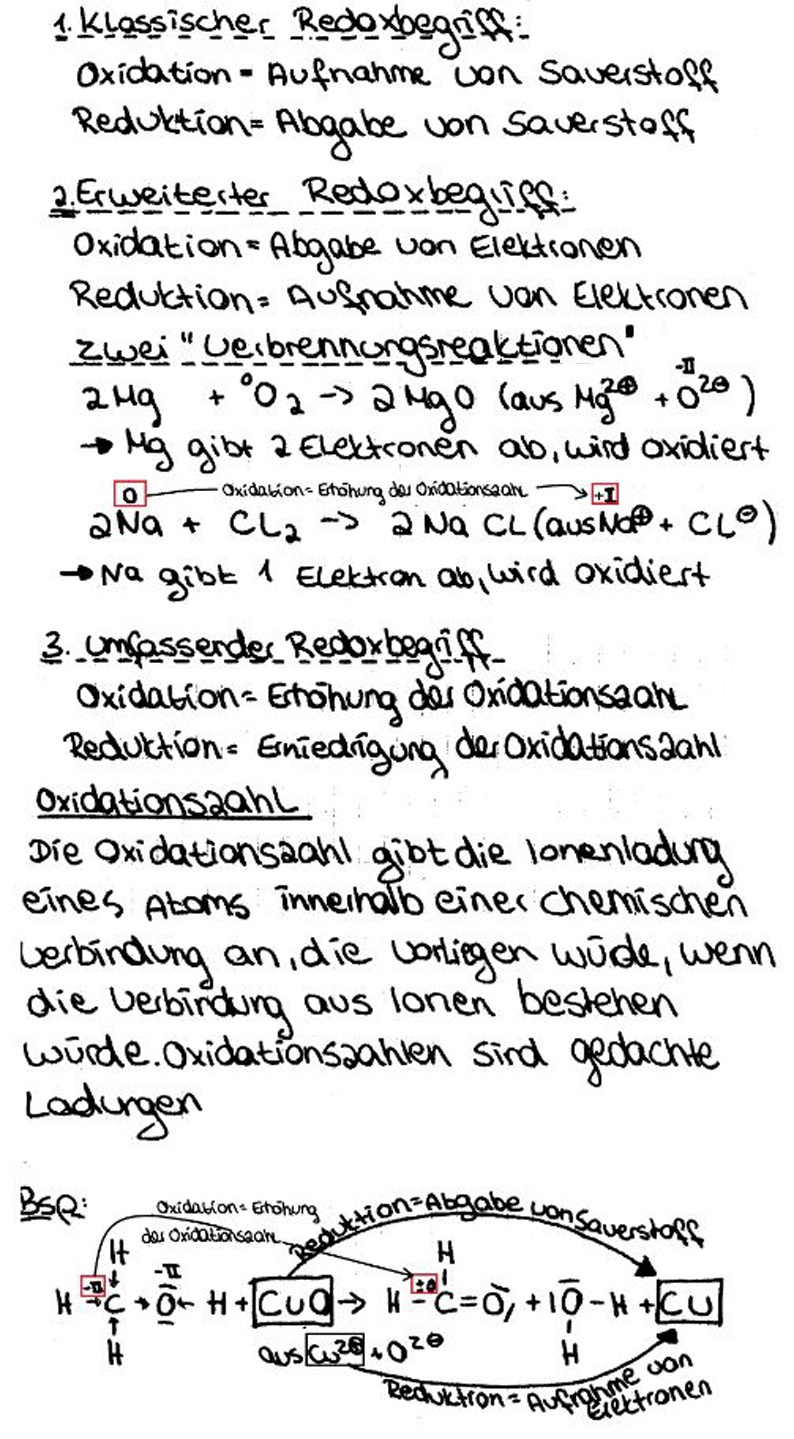 1. Klassischer Redoxbegriff:
Oxidation = Aufnahme von Sauerstoff
Reduktion = Abgabe von Sauerstoff
2. Erweiterter Redoxbegriff:
Oxidation = Abgabe von Elektronen
Reduktion = Aufnahme von Elektronen
zwei "Verbrennungsreaktionen"
-II
2Mg + ⁰O₂ -> 2MgO (aus Mg²⊕ + O²⊖)
→ Mg gibt 2 Elektronen ab, wird oxidiert
0 Oxidation = Erhöhung der Oxidationszahl → +I
2Na + CL₂ -> 2NaCL (aus Na⊕ + CL⊖)
→ Na gibt 1 Elektron ab, wird oxidiert
3. Umfassender Redoxbegriff
Oxidation = Erhöhung der Oxidationszahl
Reduktion = Erniedrigung der Oxidationszahl
Oxidationszahl
Die Oxidationszahl gibt die Ionenladung
eines Atoms innerhalb einer chemischen
Verbindung an, die vorliegen würde, wenn
die Verbindung aus Ionen bestehen
würde. Oxidationszahlen sind gedachte
Ladungen
Bsp:
Oxidation = Erhöhung
der Oxidationszahl
Reduktion = Abgabe von Sauerstoff
H H
-II -II ±0
H → C → O ← H + CuO → H - C = O, + IO - H + CU
H aus Cu²⊕ + O²⊖ H
Reduktion = Aufnahme von
Elektronen